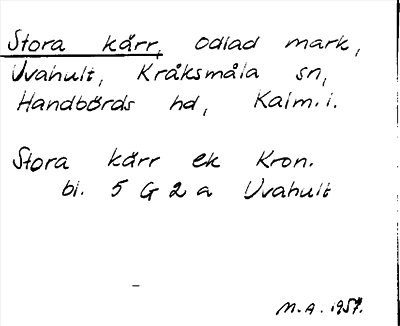 Stora kärr, odlad mark,
Uvahult, Kråksmåla sn,
Handbörds hd, Kalm. l.
Stora kärr ek Kron.
bl. 5 G 2 a Uvahult
M.A. 1957.